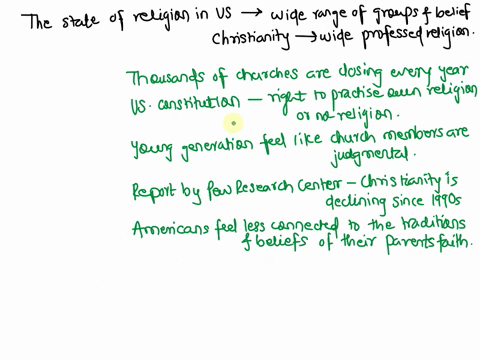 The state of religion in US → wide range of groups & belief
Christianity → wide professed religion.
Thousands of churches are closing every year
US. constitution – right to practise own religion
or no religion.
Young generation feel like church members are
judgmental.
Report by Pew Research Center – Christianity is
declining since 1990s
Americans feel less connected to the traditions
& beliefs of their parents faith.